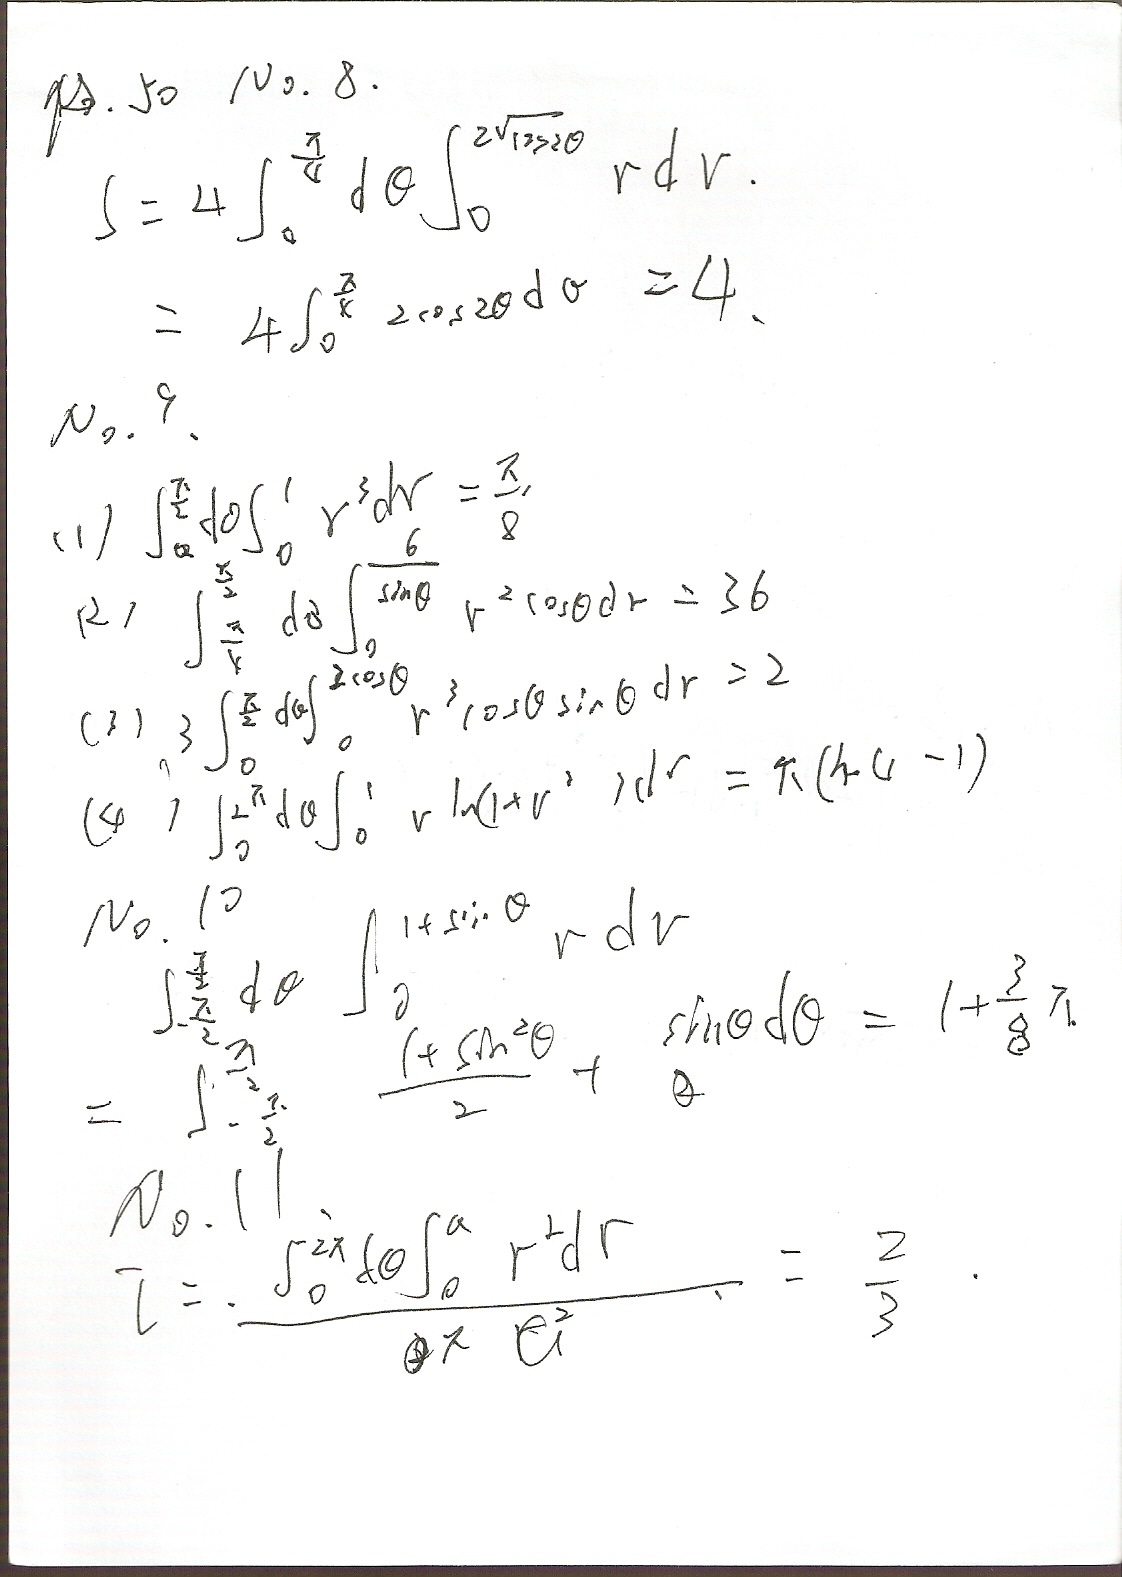 ps. 50 No. 8.
S = 4∫₀^(π/4) dθ ∫₀^(2√cos2θ) r dr.
= 4∫₀^(π/4) 2cos2θ dθ = 4.
No. 9.
(1) ∫₀^(π/2) dθ ∫₀^1 r³dr = π/8.
(2) ∫_(π/4)^(π/2) dθ ∫₀^(6/sinθ) r²cosθ dr = 36
(3) 3∫₀^(π/2) dθ ∫₀^(2cosθ) r³cosθ sinθ dr = 2
(4) ∫₀^(2π) dθ ∫₀^1 r ln(1+r²) dr = π(ln4 - 1)
No. 10
∫_(-π/2)^(π/2) dθ ∫₀^(1+sinθ) r dr
= ∫_(-π/2)^(π/2) (1+sin²θ)/2 + sinθ dθ = 1 + 3/8 π
No. 11.
I = ∫₀^(2π) dθ ∫₀^a r²dr / π a² = 2/3.